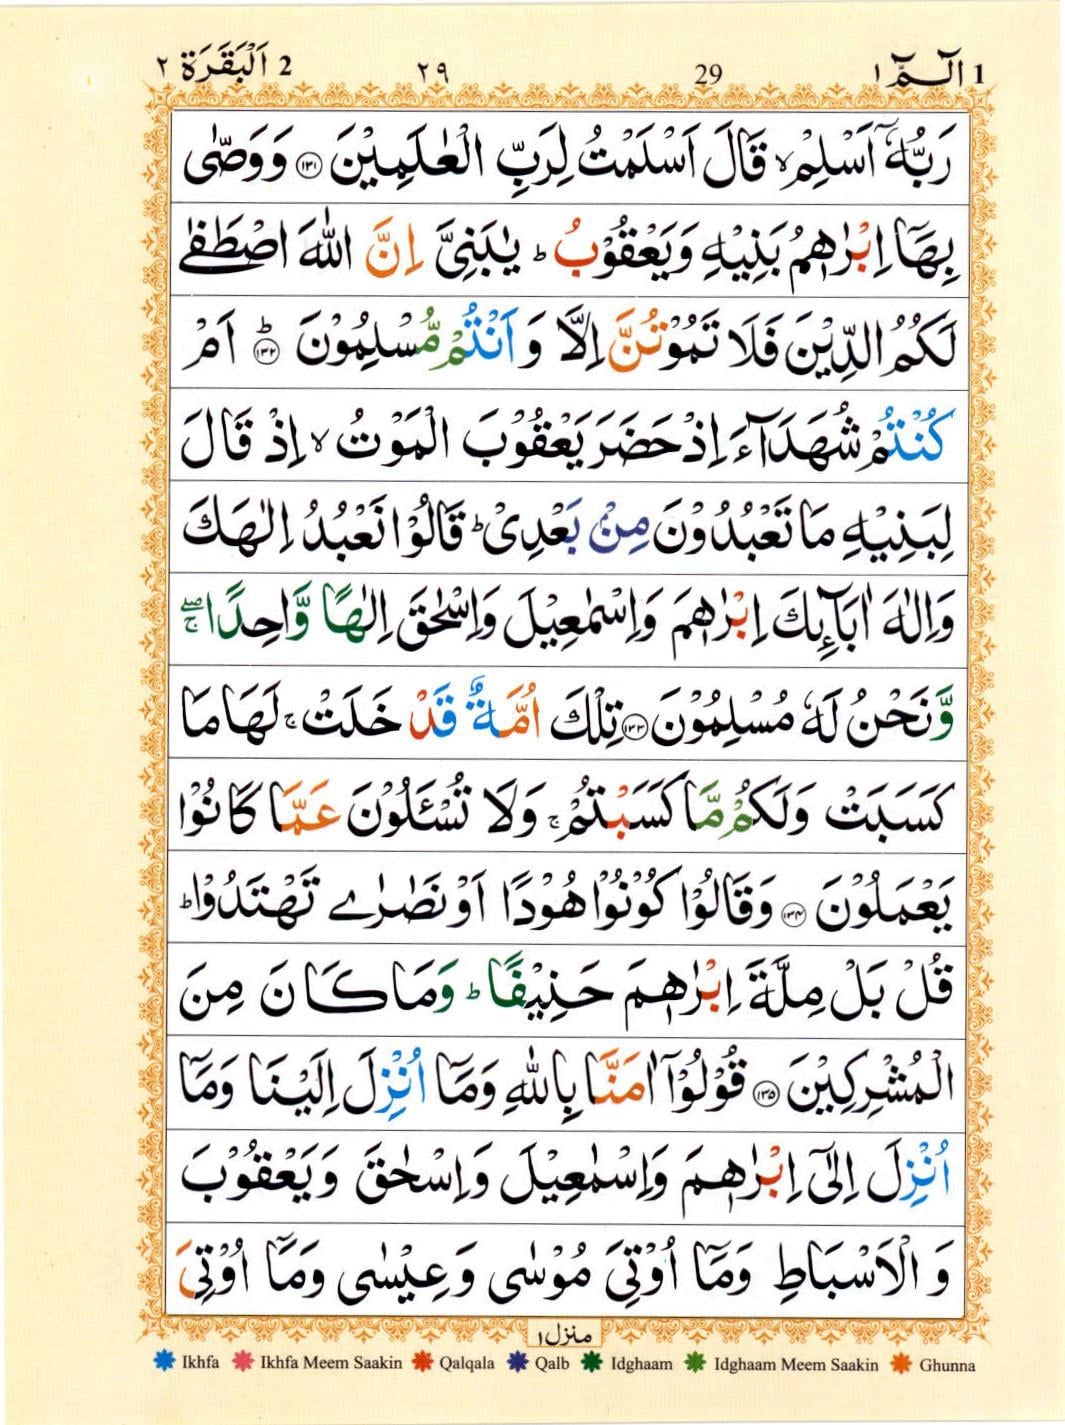 1 الٓـمّٓ ١ 29 ٢٩ 2 اَلْبَقَرَة ٢
رَبُّهٗۤ اَسْلِمْ ۙ قَالَ اَسْلَمْتُ لِرَبِّ الْعٰلَمِيْنَ ﴿۱۳۱﴾ وَ وَصّٰى
بِهَاۤ اِبْرٰهٖمُ بَنِيْهِ وَيَعْقُوْبُ ؕ يٰبَنِىَّ اِنَّ اللّٰهَ اصْطَفٰى
لَكُمُ الدِّيْنَ فَلَا تَمُوْتُنَّ اِلَّا وَ اَنْتُمْ مُّسْلِمُوْنَ ؕ ﴿۱۳۲﴾ اَمْ
كُنْتُمْ شُهَدَآءَ اِذْ حَضَرَ يَعْقُوْبَ الْمَوْتُ ۙ اِذْ قَالَ
لِبَنِيْهِ مَا تَعْبُدُوْنَ مِنْۢ بَعْدِىْ ؕ قَالُوْا نَعْبُدُ اِلٰهَكَ
وَاِلٰهَ اٰبَآئِكَ اِبْرٰهٖمَ وَاِسْمٰعِيْلَ وَاِسْحٰقَ اِلٰهًا وَّاحِدًا ۖۚ
وَّنَحْنُ لَهٗ مُسْلِمُوْنَ ﴿۱۳۳﴾ تِلْكَ اُمَّةٌ قَدْ خَلَتْ ۚ لَهَا مَا
كَسَبَتْ وَلَكُمْ مَّا كَسَبْتُمْ ۚ وَلَا تُسْـَٔلُوْنَ عَمَّا كَانُوْا
يَعْمَلُوْنَ ﴿۱۳۴﴾ وَقَالُوْا كُوْنُوْا هُوْدًا اَوْ نَصٰرٰے تَهْتَدُوْا ؕ
قُلْ بَلْ مِلَّةَ اِبْرٰهٖمَ حَنِيْفًا ؕ وَمَا كَانَ مِنَ
الْمُشْرِكِيْنَ ﴿۱۳۵﴾ قُوْلُوْۤا اٰمَنَّا بِاللّٰهِ وَمَاۤ اُنْزِلَ اِلَيْنَا وَمَاۤ
اُنْزِلَ اِلٰٓى اِبْرٰهٖمَ وَاِسْمٰعِيْلَ وَاِسْحٰقَ وَيَعْقُوْبَ
وَ الْاَسْبَاطِ وَمَاۤ اُوْتِىَ مُوْسٰى وَعِيْسٰى وَمَاۤ اُوْتِىَ
منزل ١
Ikhfa Ikhfa Meem Saakin Qalqala Qalb Idghaam Idghaam Meem Saakin Ghunna